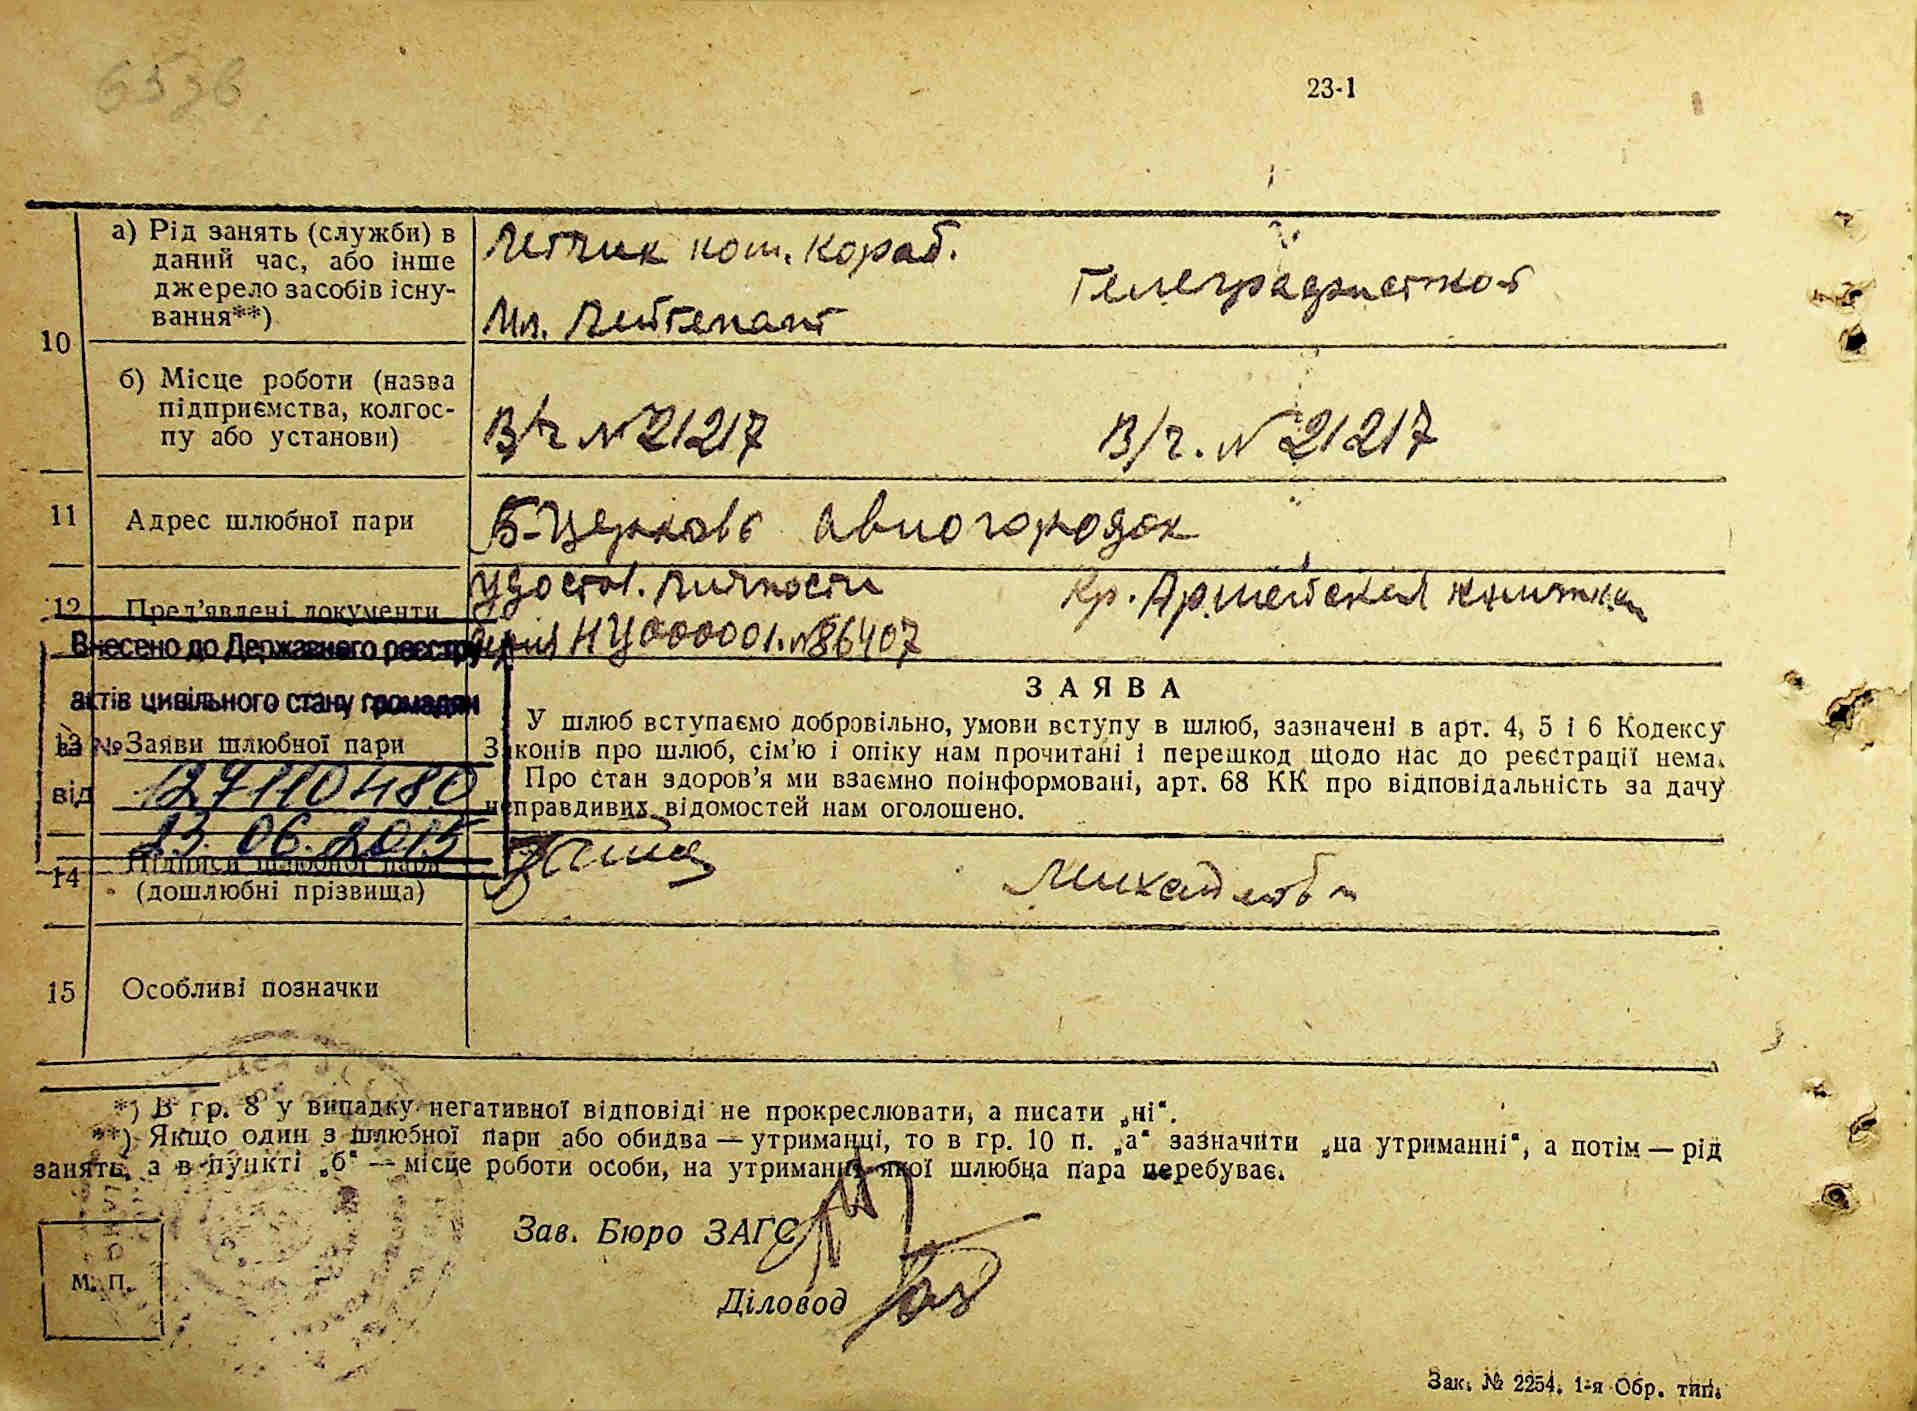 6536
23-1
10
а) Рід занять (служби) в
даний час, або інше
джерело засобів існу-
вання**)
Летчик кот. кораб.
Мл. Лейтенант
Телеграфисткой
б) Місце роботи (назва
підприємства, колгос-
пу або установи)
В/ч №21217
В/ч. №21217
11
Адрес шлюбної пари
Б-Церковь авиогородок
12
Пред’явлені документи
Удостов. личности
серия НЦ000001.№86407
Кр. Армейская книжка
Внесено до Державного реєстру
актів цивільного стану громадян
за №
127110480
від
23.06.2015
13
Заяви шлюбної пари
ЗАЯВА
У шлюб вступаємо добровільно, умови вступу в шлюб, зазначені в арт. 4, 5 і 6 Кодексу
Законів про шлюб, сім’ю і опіку нам прочитані і перешкод щодо нас до реєстрації нема.
Про стан здоров’я ми взаємно поінформовані, арт. 68 КК про відповідальність за дачу
неправдивих відомостей нам оголошено.
14
Підписи шлюбної пари
(дошлюбні прізвища)
15
Особливі позначки
*) В гр. 8 у випадку негативної відповіді не прокреслювати, а писати „ні“.
**) Якщо один з шлюбної пари або обидва — утриманці, то в гр. 10 п. „а“ зазначити „на утриманні“, а потім — рід
занять, а в пункті „б“ — місце роботи особи, на утриманні якої шлюбна пара перебуває.
Зав. Бюро ЗАГС
Діловод
М. П.
Зак. № 2254. 1-я Обр. тип.